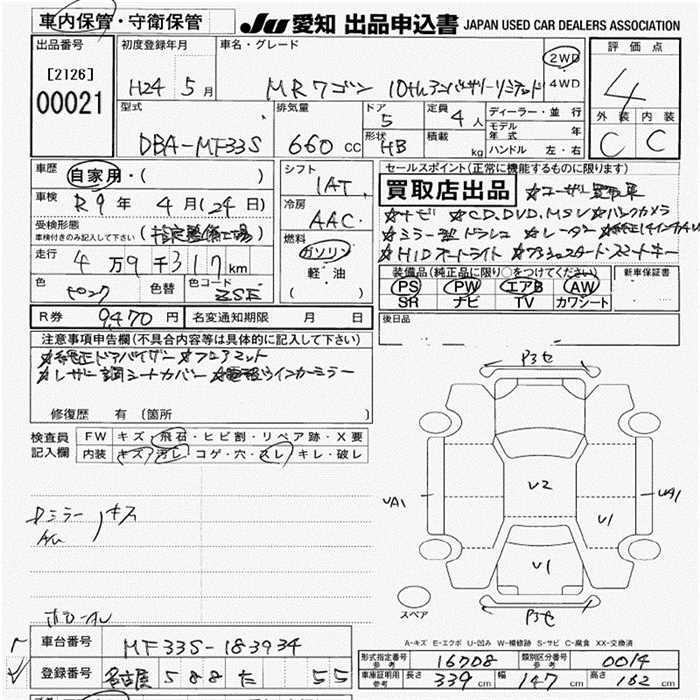 車内保管・守衛保管
JU 愛知 出品申込書 JAPAN USED CAR DEALERS ASSOCIATION
出品番号 初度登録年月 車名・グレード 2WD 4WD 評価点
[2126]
00021
H24 5月 MRワゴン 10thアニバーサリーリミテッド 4
型式 排気量 ドア 定員 ディーラー・並行 外装 内装
DBA-MF33S 660cc 5 4人 モデル年式 年 C C
形状 HB 積載 kg ハンドル 左・右
車歴 自家用・( ) シフト セールスポイント(正常に機能するものに限ります)
IAT
車検 R9年 4月(24日) 冷房 買取店出品 ★ユーザー買取車
AAC
受検形態 車検付きのみ記入して下さい (指定整備工場)
★ナビ ★CD,DVD,MSV ★バックカメラ
燃料 ガソリン 軽・油 ( )
★ミラー型ドラレコ ★レーダー
走行 4万9千317km ★HIDオートライト ★プッシュスタートスマートキー
色 色替 色コード ZSE
装備品(純正品に限り○をつけてください) 新車保証書
PS PW エアB AW
SR ナビ TV カワシート
R券 9,470円 名変通知期限 月 日 後日品
注意事項申告欄(不具合内容等は具体的に記入して下さい)
★純正ドアバイザー ★フロアマット
★レザー調シートカバー ★電格ウインカーミラー
修復歴 有 (箇所
検査員記入欄 FW キズ・飛石・ヒビ割・リペア跡・X要
内装 キズ・汚レ・コゲ・穴・スレ・キレ・破レ
P3セ
UA1 U2 UA1
U1
U1
Dミラー キズ
スペア P3セ
A-キズ E-エクボ U-凹み W-補修跡 S-サビ C-腐食 XX-交換済
車台番号 MF33S-183934
登録番号 名古屋 588 た 55
形式指定番号 参考 16708 類別区分番号 参考 0014
車庫証明用 参考 長さ 339cm 幅 147cm 高さ 162cm